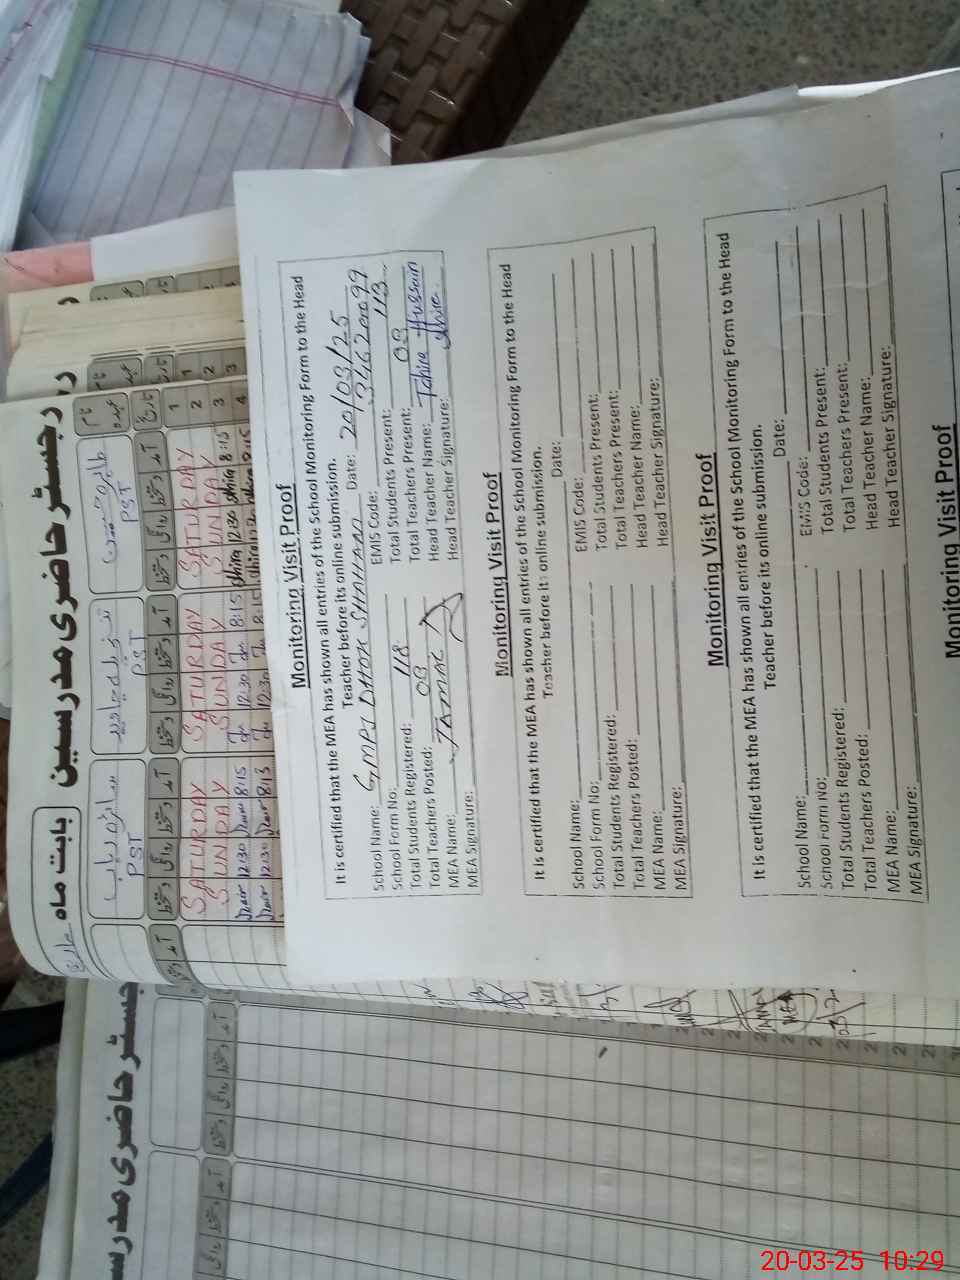 رجسٹر حاضری مدرسین
بابت ماہ
نام
عہدہ
تاریخ
طاہرہ حسین
PST
PST
سائرہ رباب
PST
آمد دستخط روانگی دستخط آمد دستخط روانگی دستخط آمد دستخط روانگی دستخط
1
2 SATURDAY SATURDAY SATURDAY
3 SUNDAY SUNDAY SUNDAY
4 8:15 12:30 8:15 12:30 8:15 12:30
8:15 8:15 12:30 8:13 12:30
Monitoring Visit Proof
It is certified that the MEA has shown all entries of the School Monitoring Form to the Head
Teacher before its online submission.
Date: 20/03/25
School Name: GMPS DHOK SHAHAN
EMIS Code: 3746200099
School Form No:
Total Students Present: 113
Total Students Registered: 118
Total Teachers Present: 03
Total Teachers Posted: 03
Head Teacher Name: Tahira Hussain
MEA Name: JAMAL
Head Teacher Signature:
MEA Signature:
Monitoring Visit Proof
It is certified that the MEA has shown all entries of the School Monitoring Form to the Head
Teacher before its online submission.
Date:
School Name:
EMIS Code:
School Form No:
Total Students Present:
Total Students Registered:
Total Teachers Present:
Total Teachers Posted:
Head Teacher Name:
MEA Name:
Head Teacher Signature:
MEA Signature:
Monitoring Visit Proof
It is certified that the MEA has shown all entries of the School Monitoring Form to the Head
Teacher before its online submission.
Date:
School Name:
EMIS Code:
School Form No:
Total Students Present:
Total Students Registered:
Total Teachers Present:
Total Teachers Posted:
Head Teacher Name:
MEA Name:
Head Teacher Signature:
MEA Signature:
Monitoring Visit Proof
MEA
20-03-25 10:29